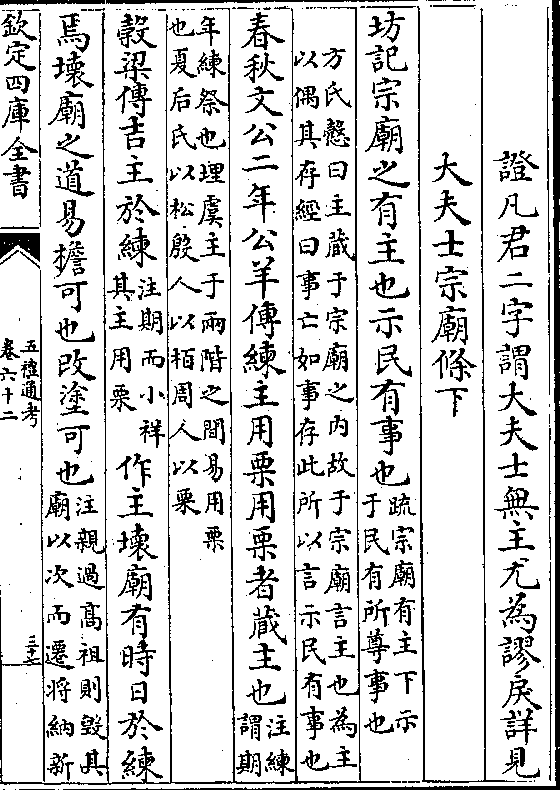 證凡君二字謂大夫士無主尤為謬戾詳見
大夫士宗廟條下
坊記宗廟之有主也示民有事也疏宗廟有主下示
于民有所尊事也
方氏慤曰主藏于宗廟之内故于宗廟言主也為主
以偶其存經曰事亡如事存此所以言示民有事也
春秋文公二年公羊傳練主用栗用栗者藏主也注練
謂期
年練祭也理虞主于兩階之間易用栗
也夏后氏以松殷人以栢周人以栗
榖梁傳吉主於練注期而小祥
其主用栗
作主壞廟有時日於練
焉壞廟之道易檐可也改塗可也注親過高祖則毀其
廟以次而遷將納新
欽定四庫全書
五禮通考
卷六十二
三十二